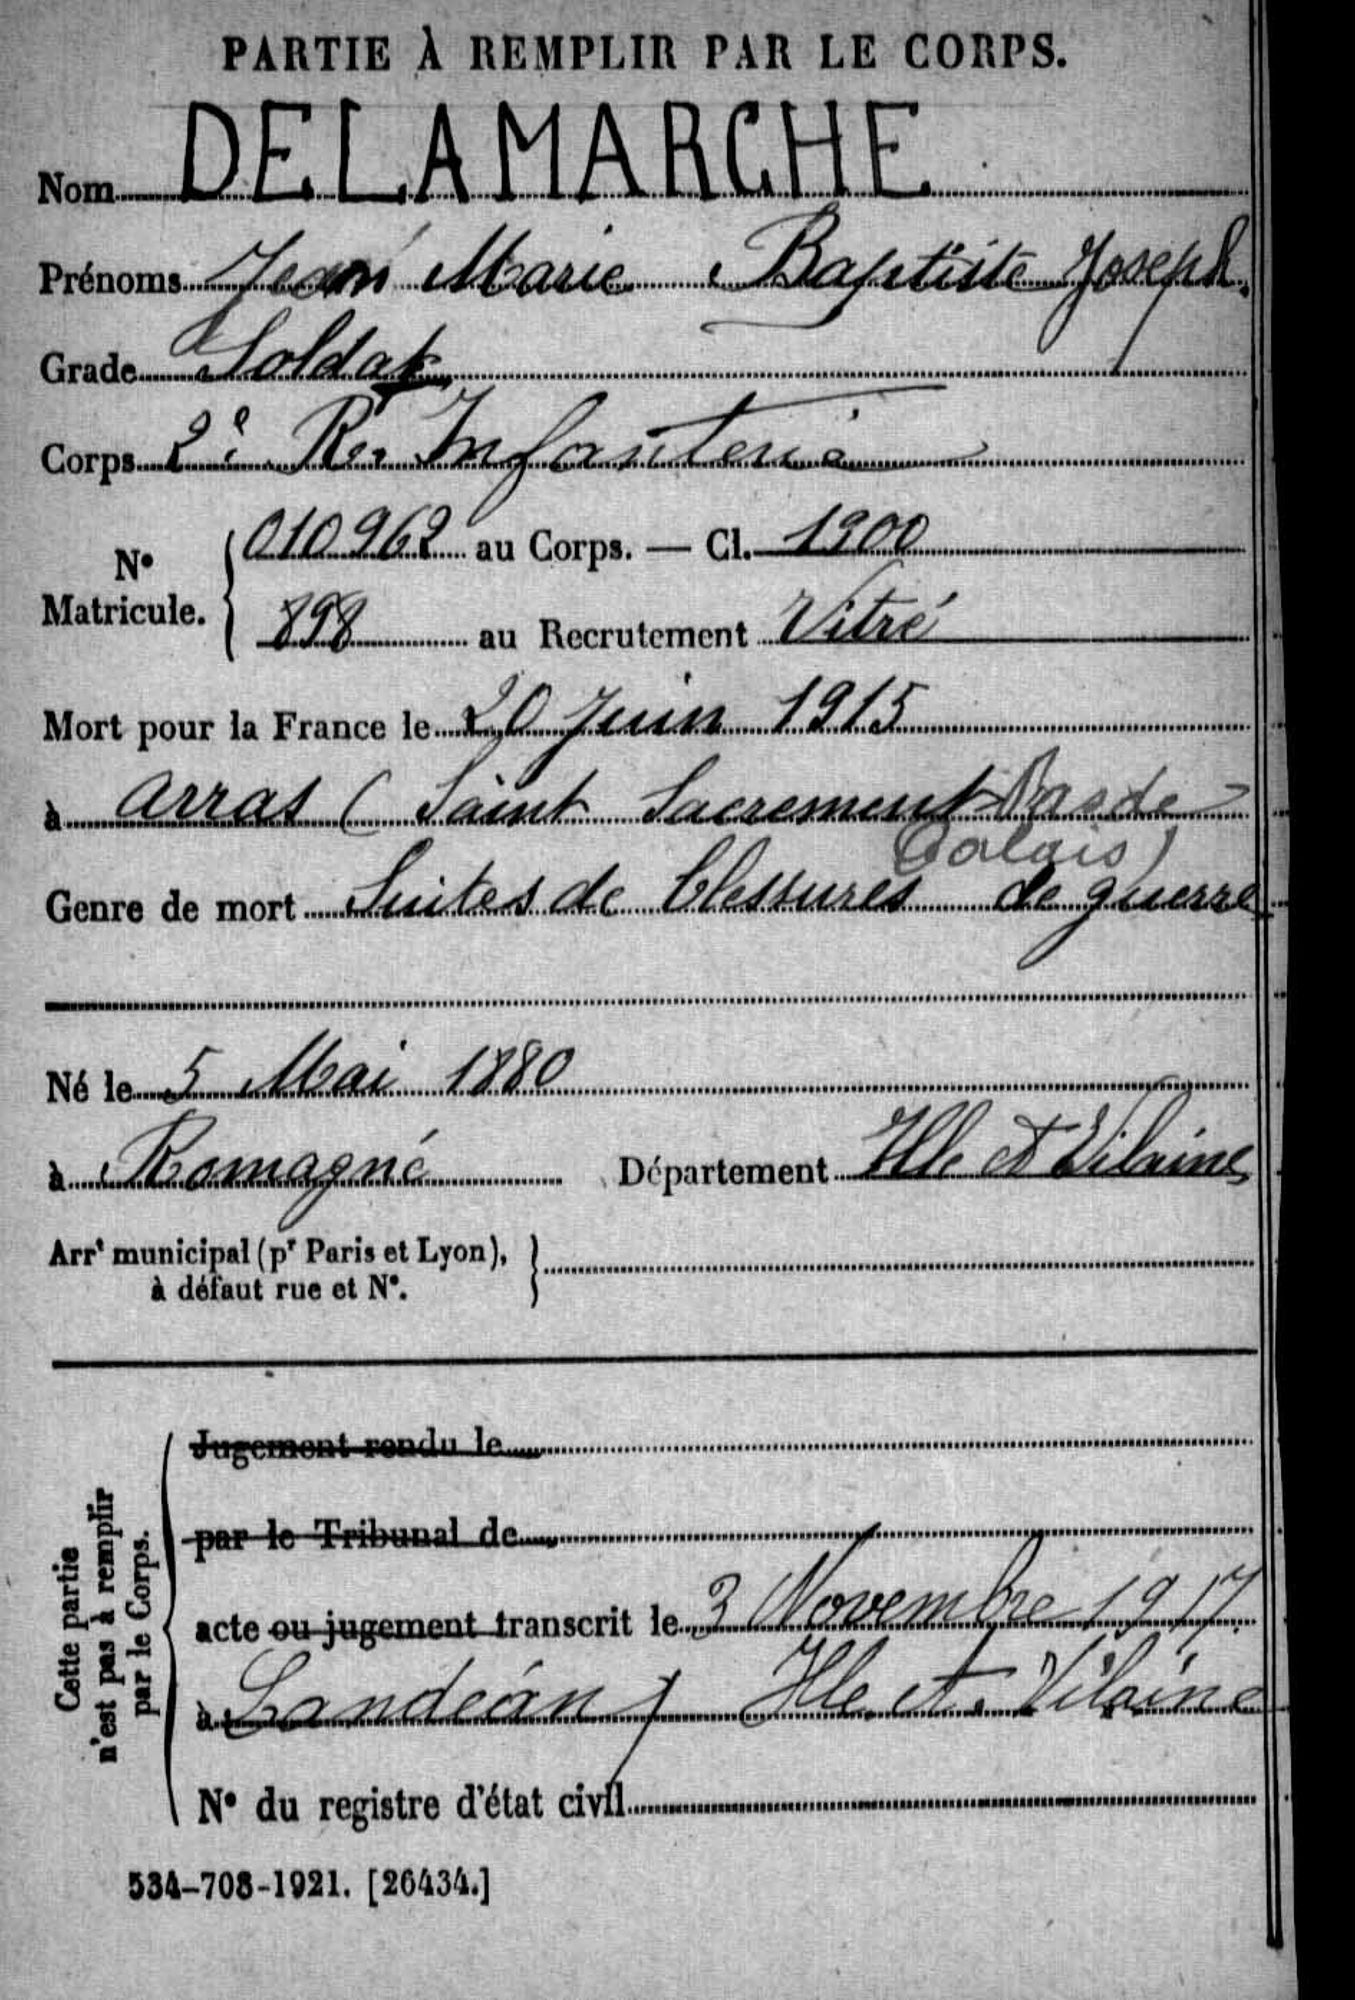 PARTIE À REMPLIR PAR LE CORPS.
Nom DELAMARCHE
Prénoms Jean Marie Baptiste Joseph.
Grade Soldat
Corps 2e R. Infanterie
N° Matricule. { 010962 au Corps. — Cl. 1900
898 au Recrutement Vitré
Mort pour la France le 20 Juin 1915
à Arras (Saint Sacrement Pas de
Calais)
Genre de mort Suites de blessures de guerre
Né le 5 Mai 1880
à Romagné Département Ille et Vilaine
Arrt municipal (pr Paris et Lyon), }
à défaut rue et N°.
Cette partie
n'est pas à remplir
par le Corps.
Jugement rendu le
par le Tribunal de
acte ou jugement transcrit le 3 Novembre 1917
à Landéan, Ille et Vilaine
N° du registre d'état civil
534-708-1921. [26434.]